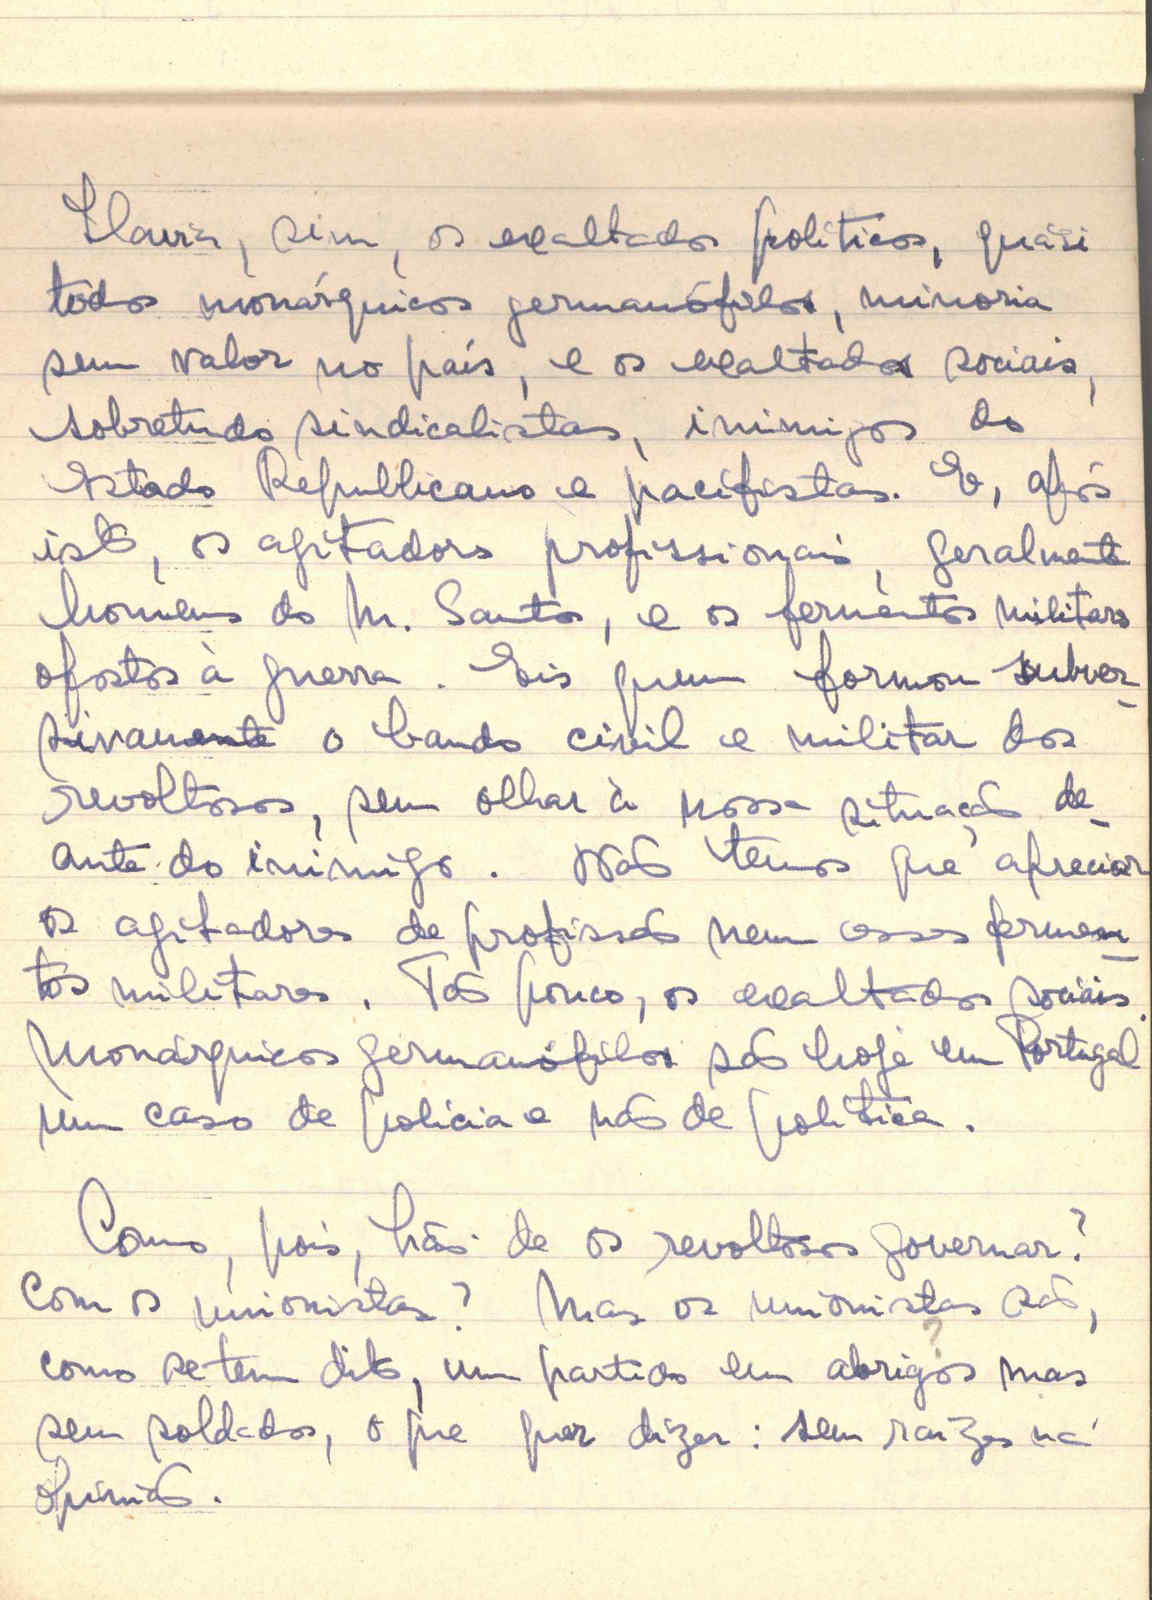 Haveria, sim, os exaltados políticos, quási
todos monárquicos germanófilos, minoria
sem valor no país, e os exaltados sociais,
sobretudo sindicalistas, inimigos do
Estado Republicano e pacifistas. E, após
isto, os agitadores profissionais, geralmente
homens do M. Santos, e os fermentos militares
opostos à guerra. Eis quem formou subver-
sivamente o bando civil e militar dos
revoltosos, sem olhar à nossa situação de-
ante do inimigo. Não temos que apreciar
os agitadores de profissão nem esses fermen-
tos militares. Tão pouco, os exaltados sociais.
Monárquicos germanófilos são hoje em Portugal
um caso de polícia e não de política.
Como, pois, hão de os revoltosos governar?
Com os unionistas? Mas os unionistas são,
?
como se tem dito, um partido em abrigos mas
sem soldados, o que quer dizer: sem raízes na
opinião.